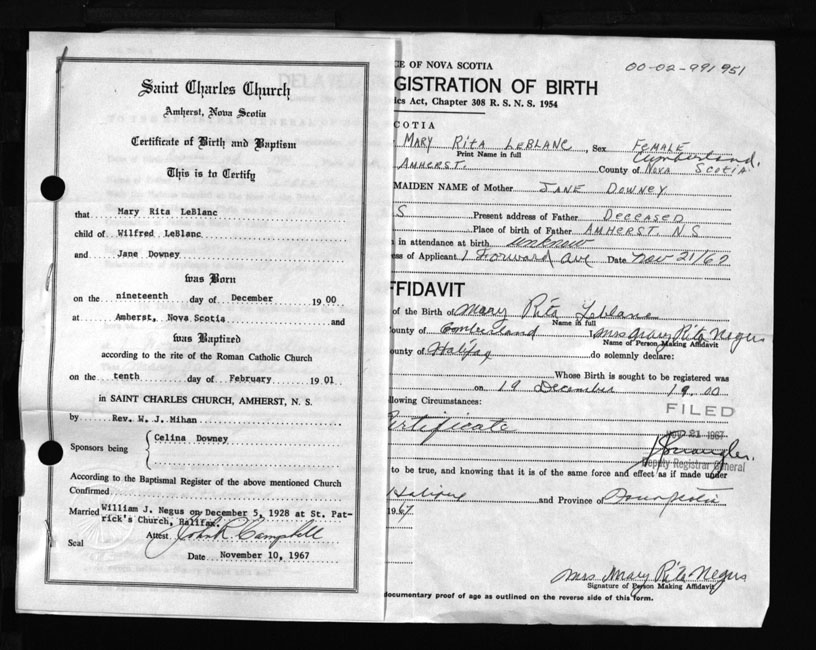 Saint Charles Church
Amherst, Nova Scotia
Certificate of Birth and Baptism
This is to Certify
that Mary Rita LeBlanc
child of Wilfred LeBlanc
and Jane Downey
was Born
on the nineteenth day of December 1900
at Amherst, Nova Scotia and
was Baptized
according to the rite of the Roman Catholic Church
on the tenth day of February 1901
in SAINT CHARLES CHURCH, AMHERST, N. S.
by Rev. W. J. Mihan
Sponsors being Celina Downey
According to the Baptismal Register of the above mentioned Church
Confirmed
Married William J. Negus on December 5, 1928 at St. Pat-
rick's Church, Halifax.
Attest John R Campbell
Seal
Date November 10, 1967
CE OF NOVA SCOTIA
00-02-991951
GISTRATION OF BIRTH
ics Act, Chapter 308 R. S. N. S. 1954
COTIA
MARY RITA LEBLANC, Sex FEMALE
Print Name in full
Cumberland.
AMHERST. County of NOVA SCOTIA
MAIDEN NAME of Mother JANE DOWNEY
S Present address of Father DECEASED
Place of birth of Father AMHERST. N S
in attendance at birth unknow
ess of Applicant 1 Forward Ave Date Nov 21/67
FFIDAVIT
of the Birth of Mary Rita Leblanc
Name in full
ounty of Comberland I, Mrs Mary Rita Negus
Name of Person Making Affidavit
ounty of Halifax do solemnly declare:
Whose Birth is sought to be registered was
on 19 December 1900
llowing Circumstances:
FILED
ertificate
NOV 21 1967
Deputy Registrar General
to be true, and knowing that it is of the same force and effect as if made under
and Province of
1967
Mrs Mary Rita Negus
Signature of Person Making Affidavit
documentary proof of age as outlined on the reverse side of this form.